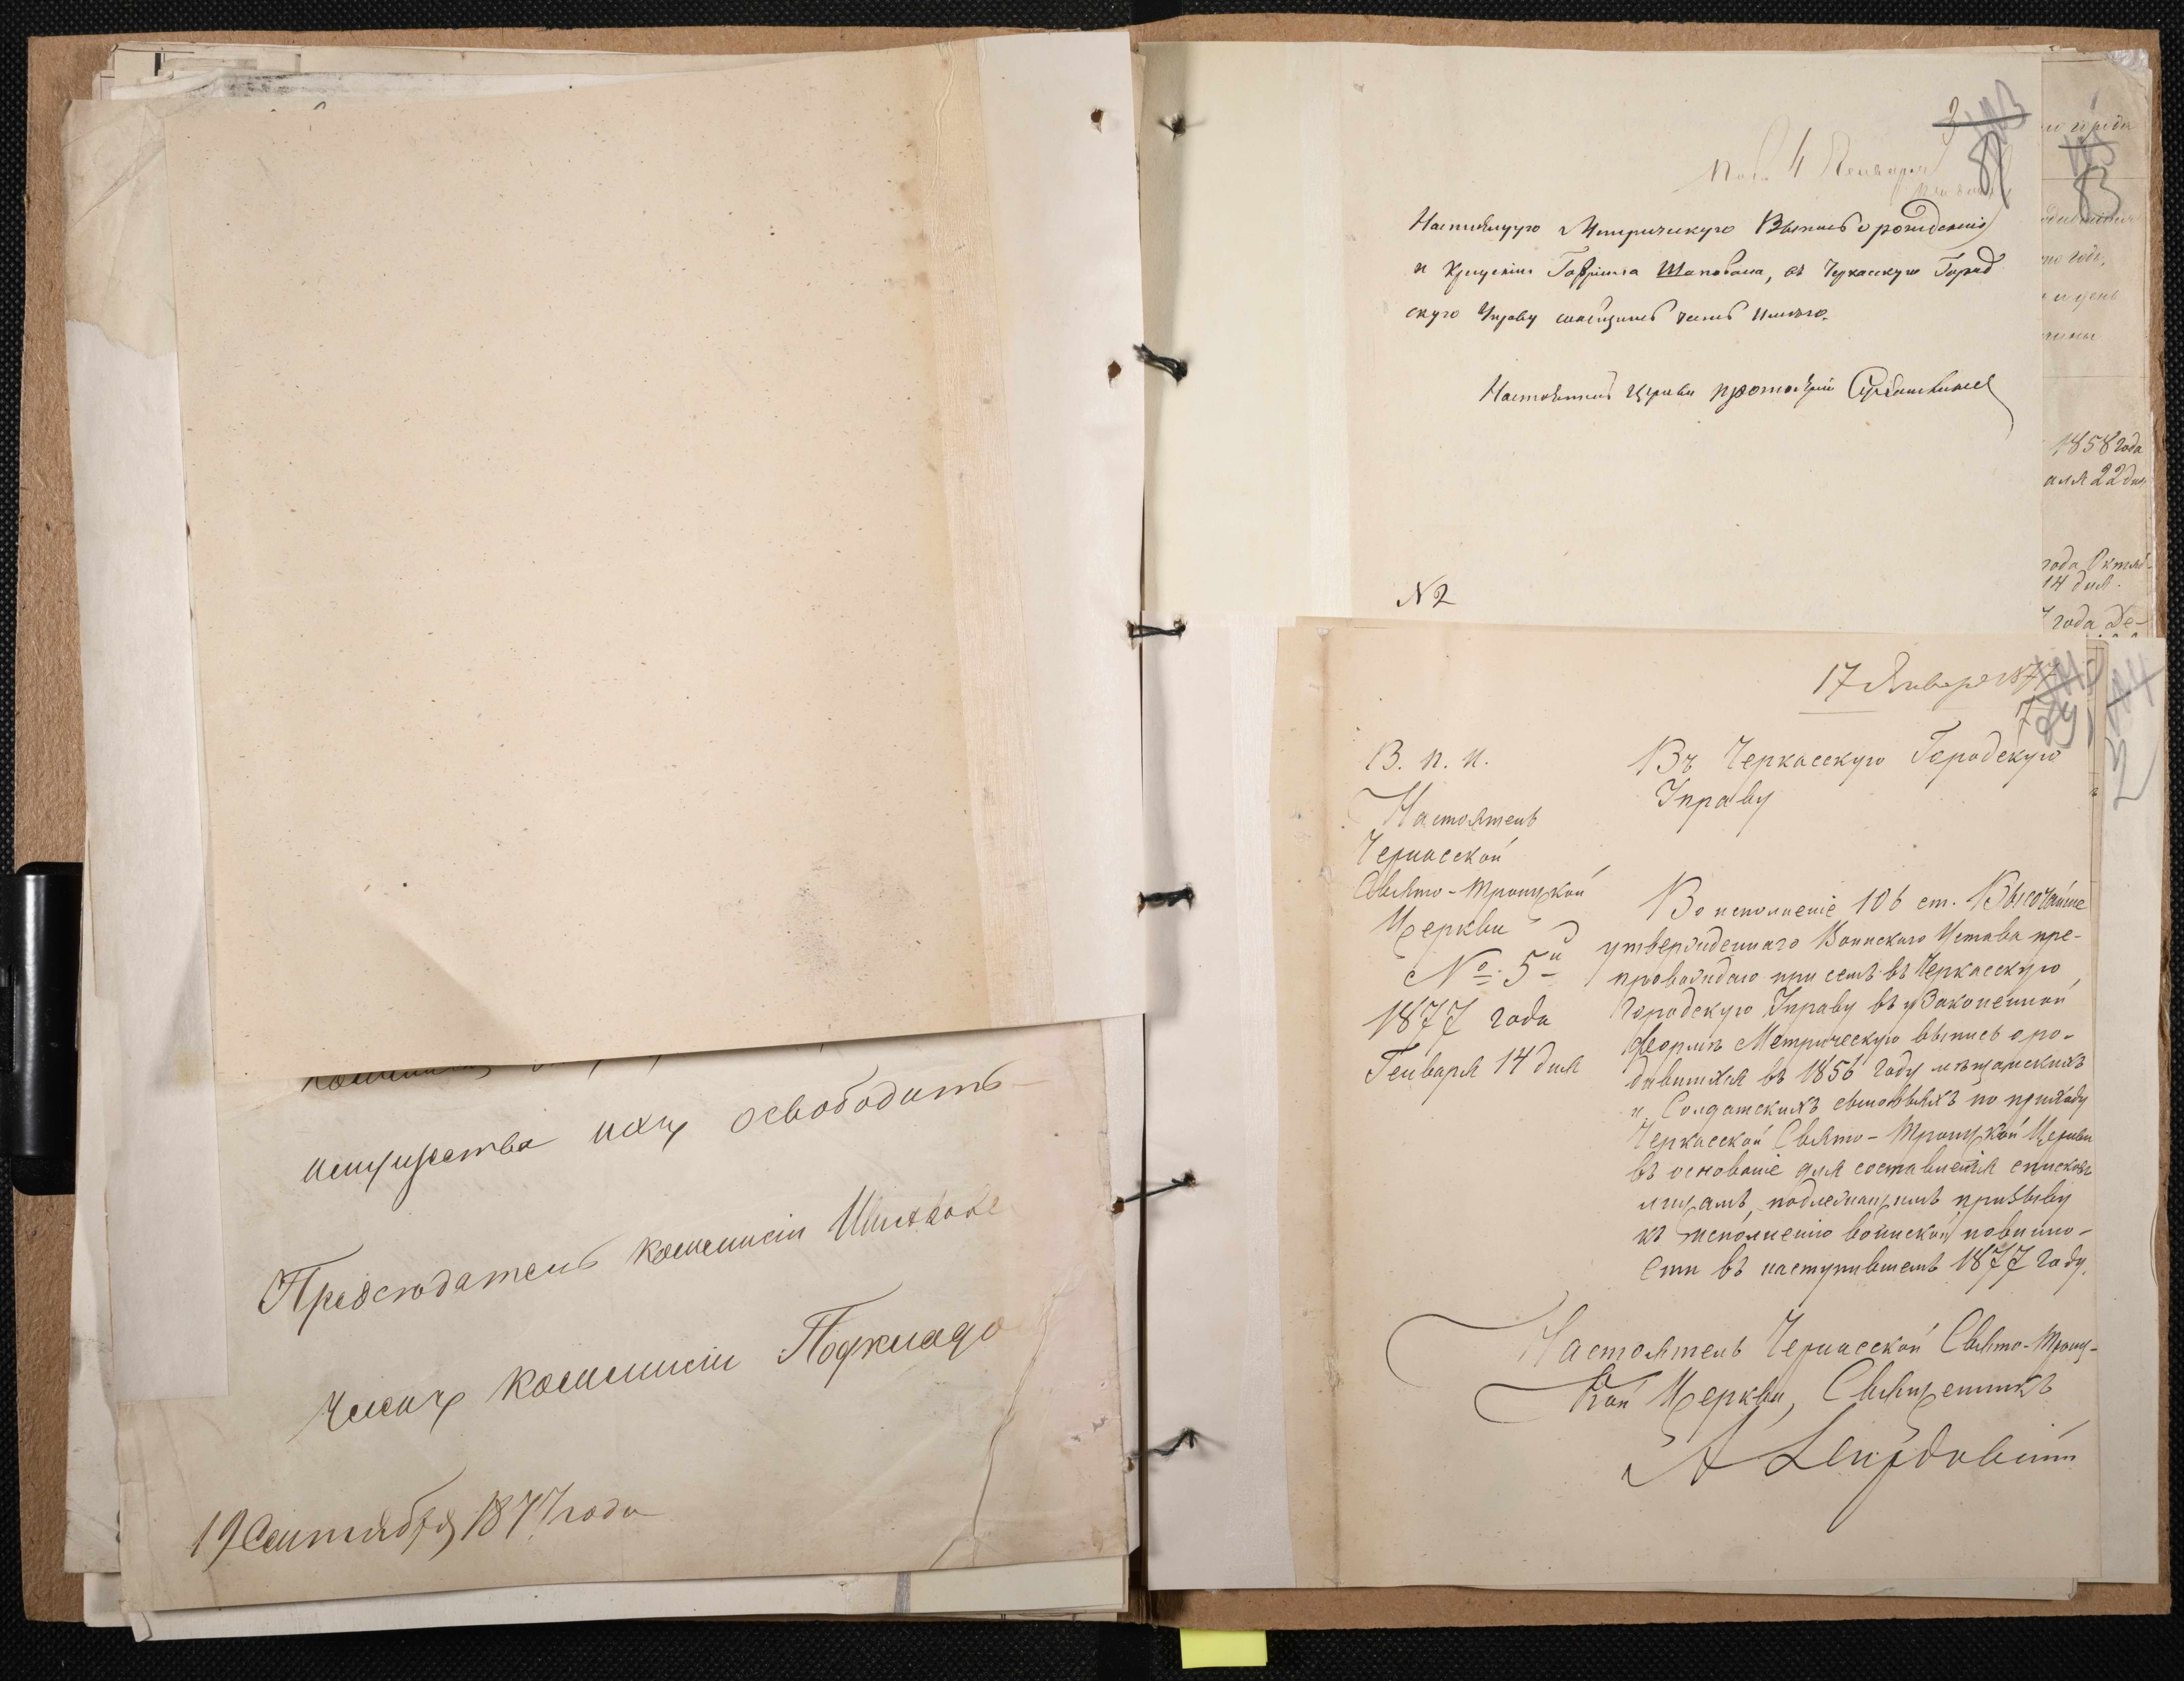 имущества ихъ освободить
Председатель коммисіи
Членъ коммисіи
19 Сентября 1877 года
3
4 Генваря
Настоящую Метрическую Выпись о рожденіи
и крещеніи Гавріила Шаповала, въ Черкасскую Город
скую Управу имѣю честь
Настоятель Церкви протоіерей
N 2
1858 года
22 дня
года Октяб-
14 дня.
года Де-
17 Января 1877
7
В. П. И.
Настоятель
Черкасской
Свято-Троицкой
Церкви
№ 5й
1877 года
Генваря 14 дня
Въ Черкасскую Городскую
Управу
Во исполненіе 106 ст. Высочайше
утвержденнаго Воинскаго Устава пре-
провождаю при семъ въ Черкасскую
Городскую Управу въ узаконенной
формѣ Метрическую выпись о ро-
дившихся въ 1856 году мѣщанскихъ
и Солдатскихъ сыновьяхъ по приходу
Черкасской Свято-Троицкой Церкви
въ основаніе для составленія списковъ
лицамъ, подлежащимъ призыву
къ исполненію воинской повинно-
сти въ наступившемъ 1877 году.
Настоятель Черкасской Свято-Троиц-
кой Церкви, Священникъ